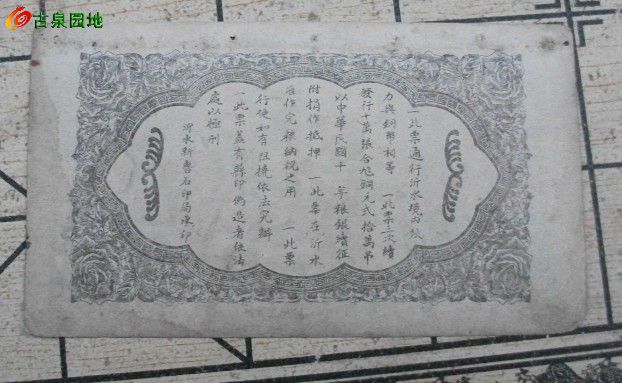 古泉园地
一此票通行沂水境内效
力與銅幣相等 一此票二次續
發行十萬張合旭銅元弍拾萬吊
以中華民國十 年粮銀續征
附捐作抵押 一此票在沂水
准作完粮納税之用 一此票
行使如有阻撓依法究辦
一此票蓋有縣印偽造者依法
處以極刑
沂水新魯石印局承印